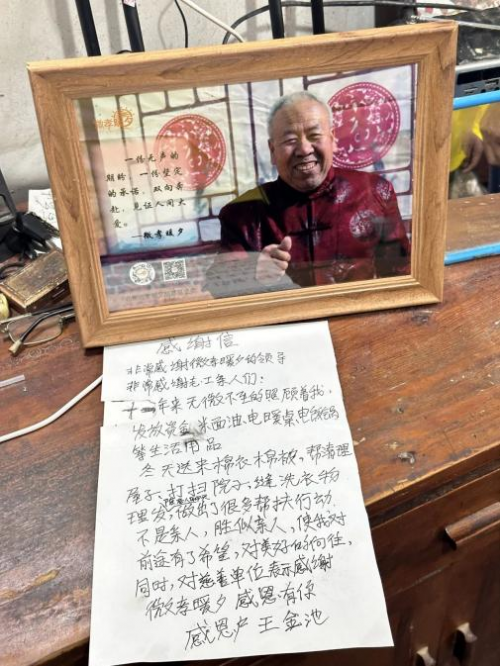 微孝暖夕
一份无声的
期盼，一份坚定
的承诺，双向奔
赴，见证人间大
爱。
—微孝暖夕
感谢信
非常感谢微孝暖夕的领导
非常感谢志工亲人们：
年来无微不至的照顾着我，
发放资金、米面油、电暖桌、电饭锅
等生活用品
冬天送来棉衣棉被，帮清理
屋子、打扫院子、缝洗衣物
理发，做出了很多帮扶行动
不是亲人，胜似亲人，使我对
前途有了希望，对美好的向往，
同时，对慈善单位表示感谢
微孝暖夕 感恩有你
感恩户 王金池